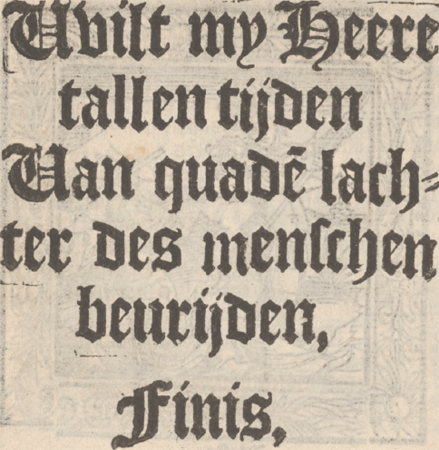 Wilt my Heere
tallen tijden
Uan quadē lach-
ter des menſchen
beurijden,
Finis,